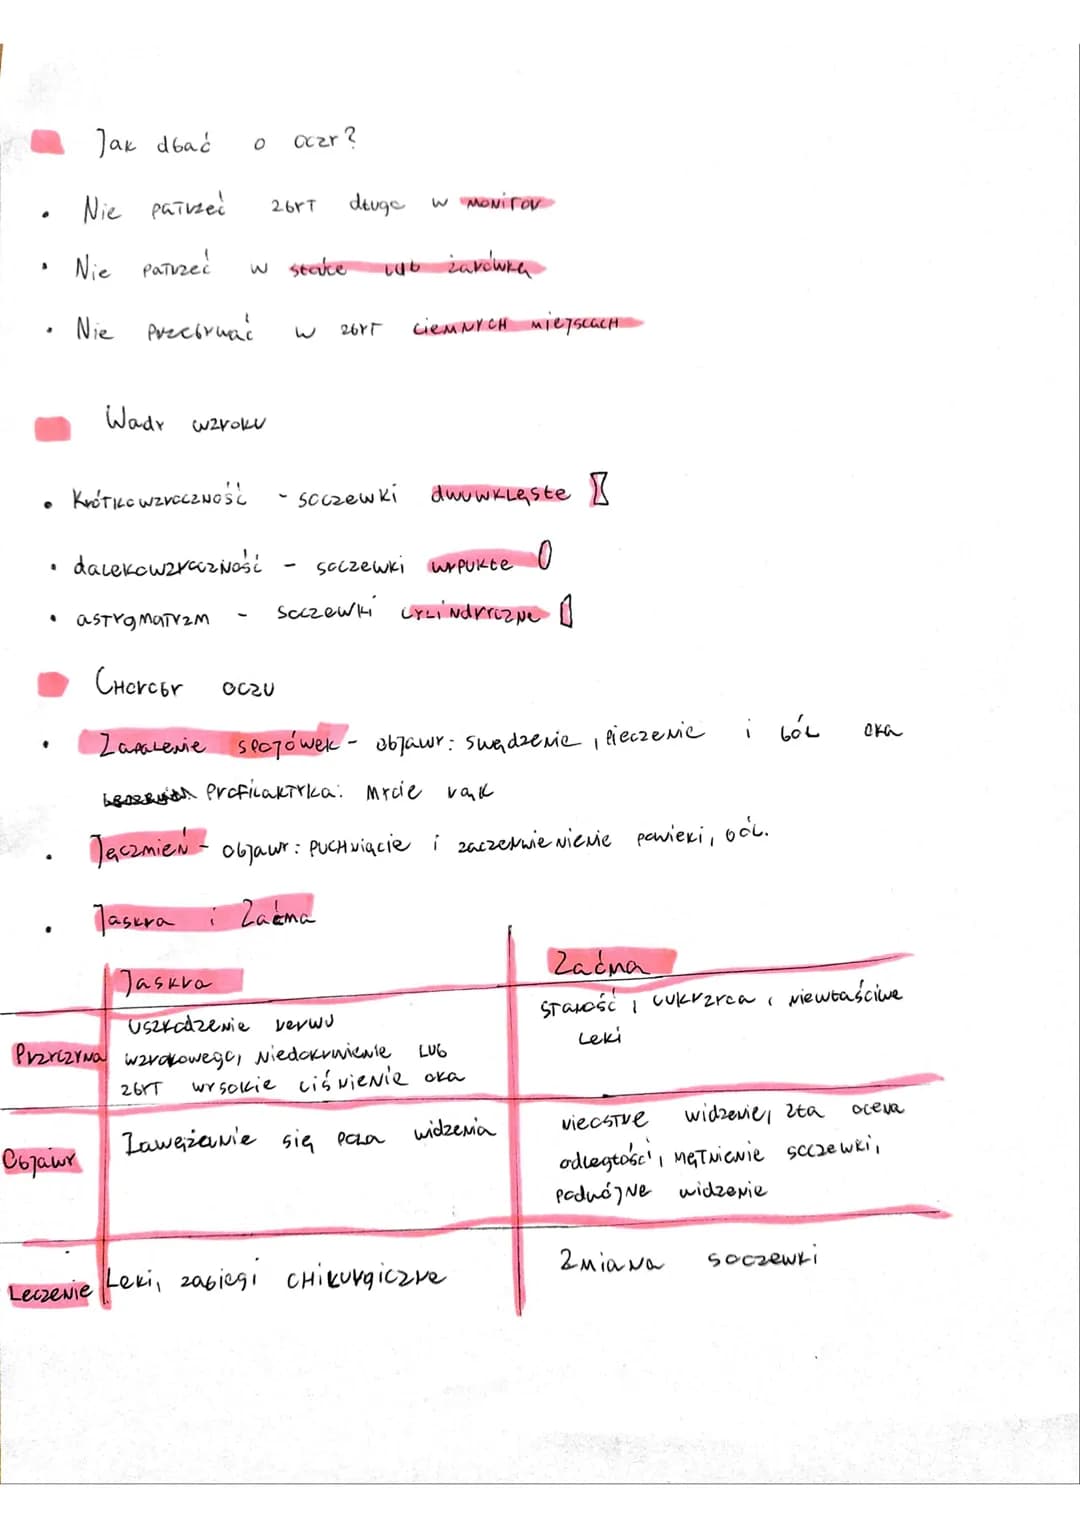 Jak dbać o oczy?
• Nie patrzeć zbyt długo w monitor
• Nie patrzeć w słońce lub żarówkę
• Nie przebywać w zbyt ciemnych miejscach
Wady wzroku
• Krótkowzroczność - soczewki dwuwklęsłe
• dalekowzroczność - soczewki wypukłe
• astygmatyzm - soczewki cylindryczne
Choroby oczu
• Zapalenie spojówek - objawy: swędzenie, pieczenie i ból oka
Profilaktyka: mycie rąk
• Jęczmień - objawy: puchnięcie i zaczerwienienie powieki, ból.
• Jaskra i Zaćma
Jaskra Zaćma
Przyczyna uszkodzenie nerwu wzrokowego, niedokrwienie lub zbyt wysokie ciśnienie oka starość, cukrzyca, niewłaściwe leki
Objawy Zawężenie się pola widzenia nieostre widzenie, zła ocena odległości, mętnienie soczewki, podwójne widzenie
Leczenie Leki, zabiegi chirurgiczne Zmiana soczewki